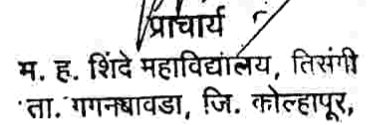 प्राचार्य
म. ह. शिंदे महाविद्यालय, तिसंगी
ता. गगनबावडा, जि. कोल्हापूर,